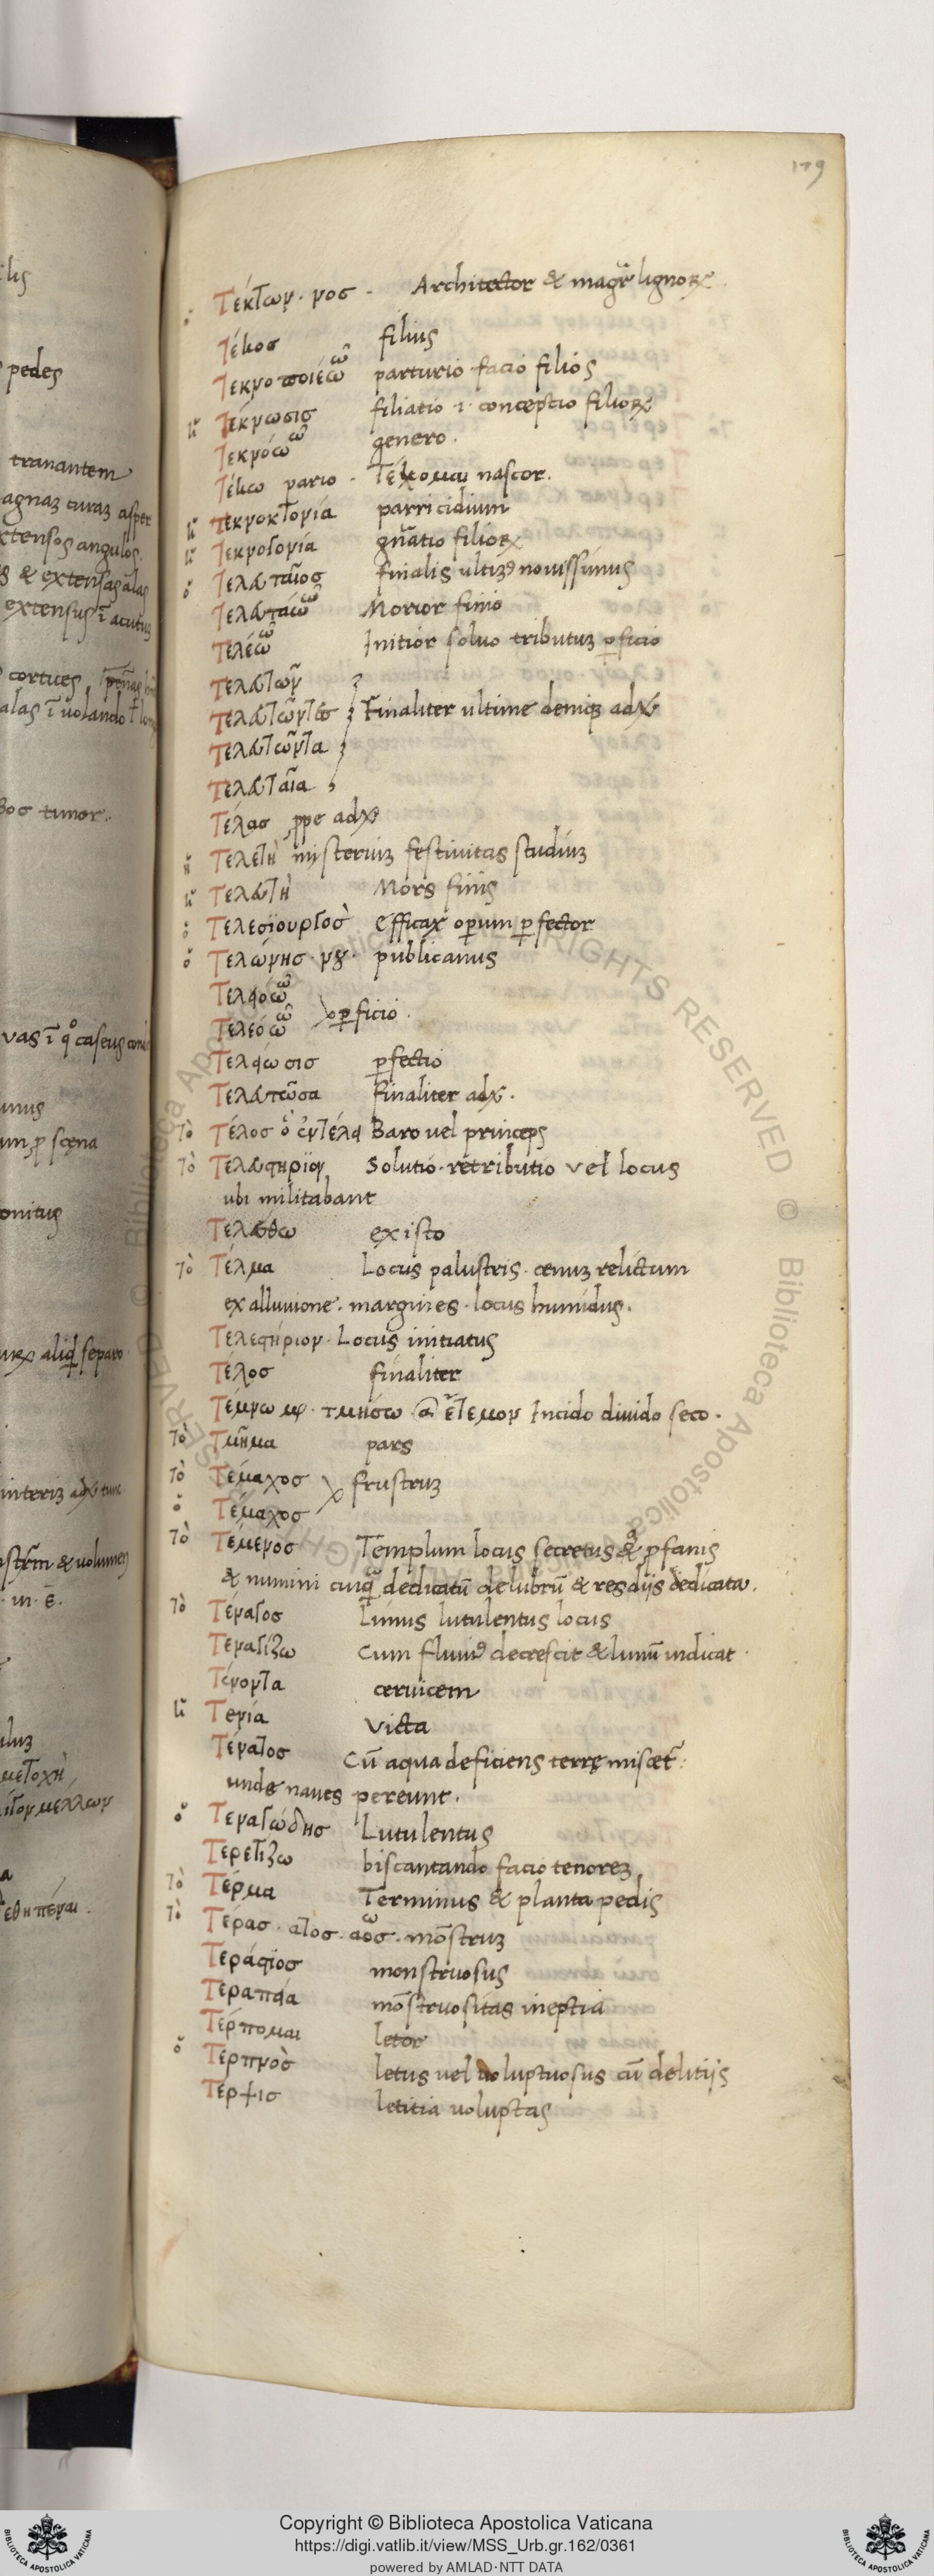 179
ὁ Τέκτων · νος · Architector & magr̄ lignoꝝ
Τέκος filius
Τεκνοποιέω ῶ parturio facio filios
ἡ Τέκνωσις filiatio .i. conceptio filioꝝ
Τεκνόω ῶ genero.
Τέκω pario · Τέκομαι nascor.
ἡ Τεκνοκτονία parricidium
ἡ Τεκνογονία gn̄atio filioꝝ
ὁ Τελευταῖος finalis ultimꝰ novissimus
Τελευτάω ῶ Morior finio
Τελέω ῶ Initior solvo tributuꝫ ꝑficio
Τελευτῶν
Τελευτῶντως Finaliter ultime deniqꝫ
Τελευτῶντα
Τελευταῖα
Τέλας
Τελετὴ misteriuꝫ festivitas studiuꝫ
ἡ Τελευτὴ Mors finis
ὁ Τελεσιουργὸς efficax operum ꝑfector
ὁ Τελώνης · νου · publicanus
Τελειόω ῶ
Τελεόω ῶ ꝑficio.
Τελείωσις ꝑfectio
Τελευτῶσα Finaliter
τὸ Τέλος ὁ ἐν τέλει Baro vel princeps
τὸ Solutio · retributio vel locus
ubi militabant
Τελέθω existo
τὸ Τέλμα Locus palustris · cenuꝫ relictum
ex alluvione · margines · locus humidus.
Τελεστήριον · Locus initiatus
Τέλος finaliter
Τέμνω · τμήσω ἔτεμον Incido divido seco.
τὸ Τμῆμα pars
τὸ Τέμαχος frustruꝫ
ὁ Τέμαχος
τὸ Τέμενος Templum locus secretus ꝓfanis
& numini dedicatū delubrū & res diis dedicata.
τὸ Τέναγος Limus lutulentus locus
Τεναγίζω Cum fluviꝰ decrescit & limū indicat
Τένοντα cervicem
ἡ Τενία victa
Τέναγος Cū aqua deficiens terrę miscet̄
unde naves pereunt.
ὁ Τεναγώδης Lutulentus
Τερετίζω biscantando facio tenoreꝫ
τὸ Τέρμα Terminus & planta pedis
τὸ Τέρας · ατος · αος · mōstruꝫ
Τεράστιος monstruosus
Τερατεία mōstruositas ineptia
Τέρπομαι letor
ὁ Τερπνὸς letus vel voluptuosus cū delitiis
Τέρψις letitia voluptas
pedes
tranantem
extensos angulos
& extensas alas
extensus ī acutuꝫ
cortues
alas ī volando
timor.
scena
onitus
separo
μετοχὴ
μέλλων
Copyright © Biblioteca Apostolica Vaticana
https://digi.vatlib.it/view/MSS_Urb.gr.162/0361
powered by AMLAD·NTT DATA